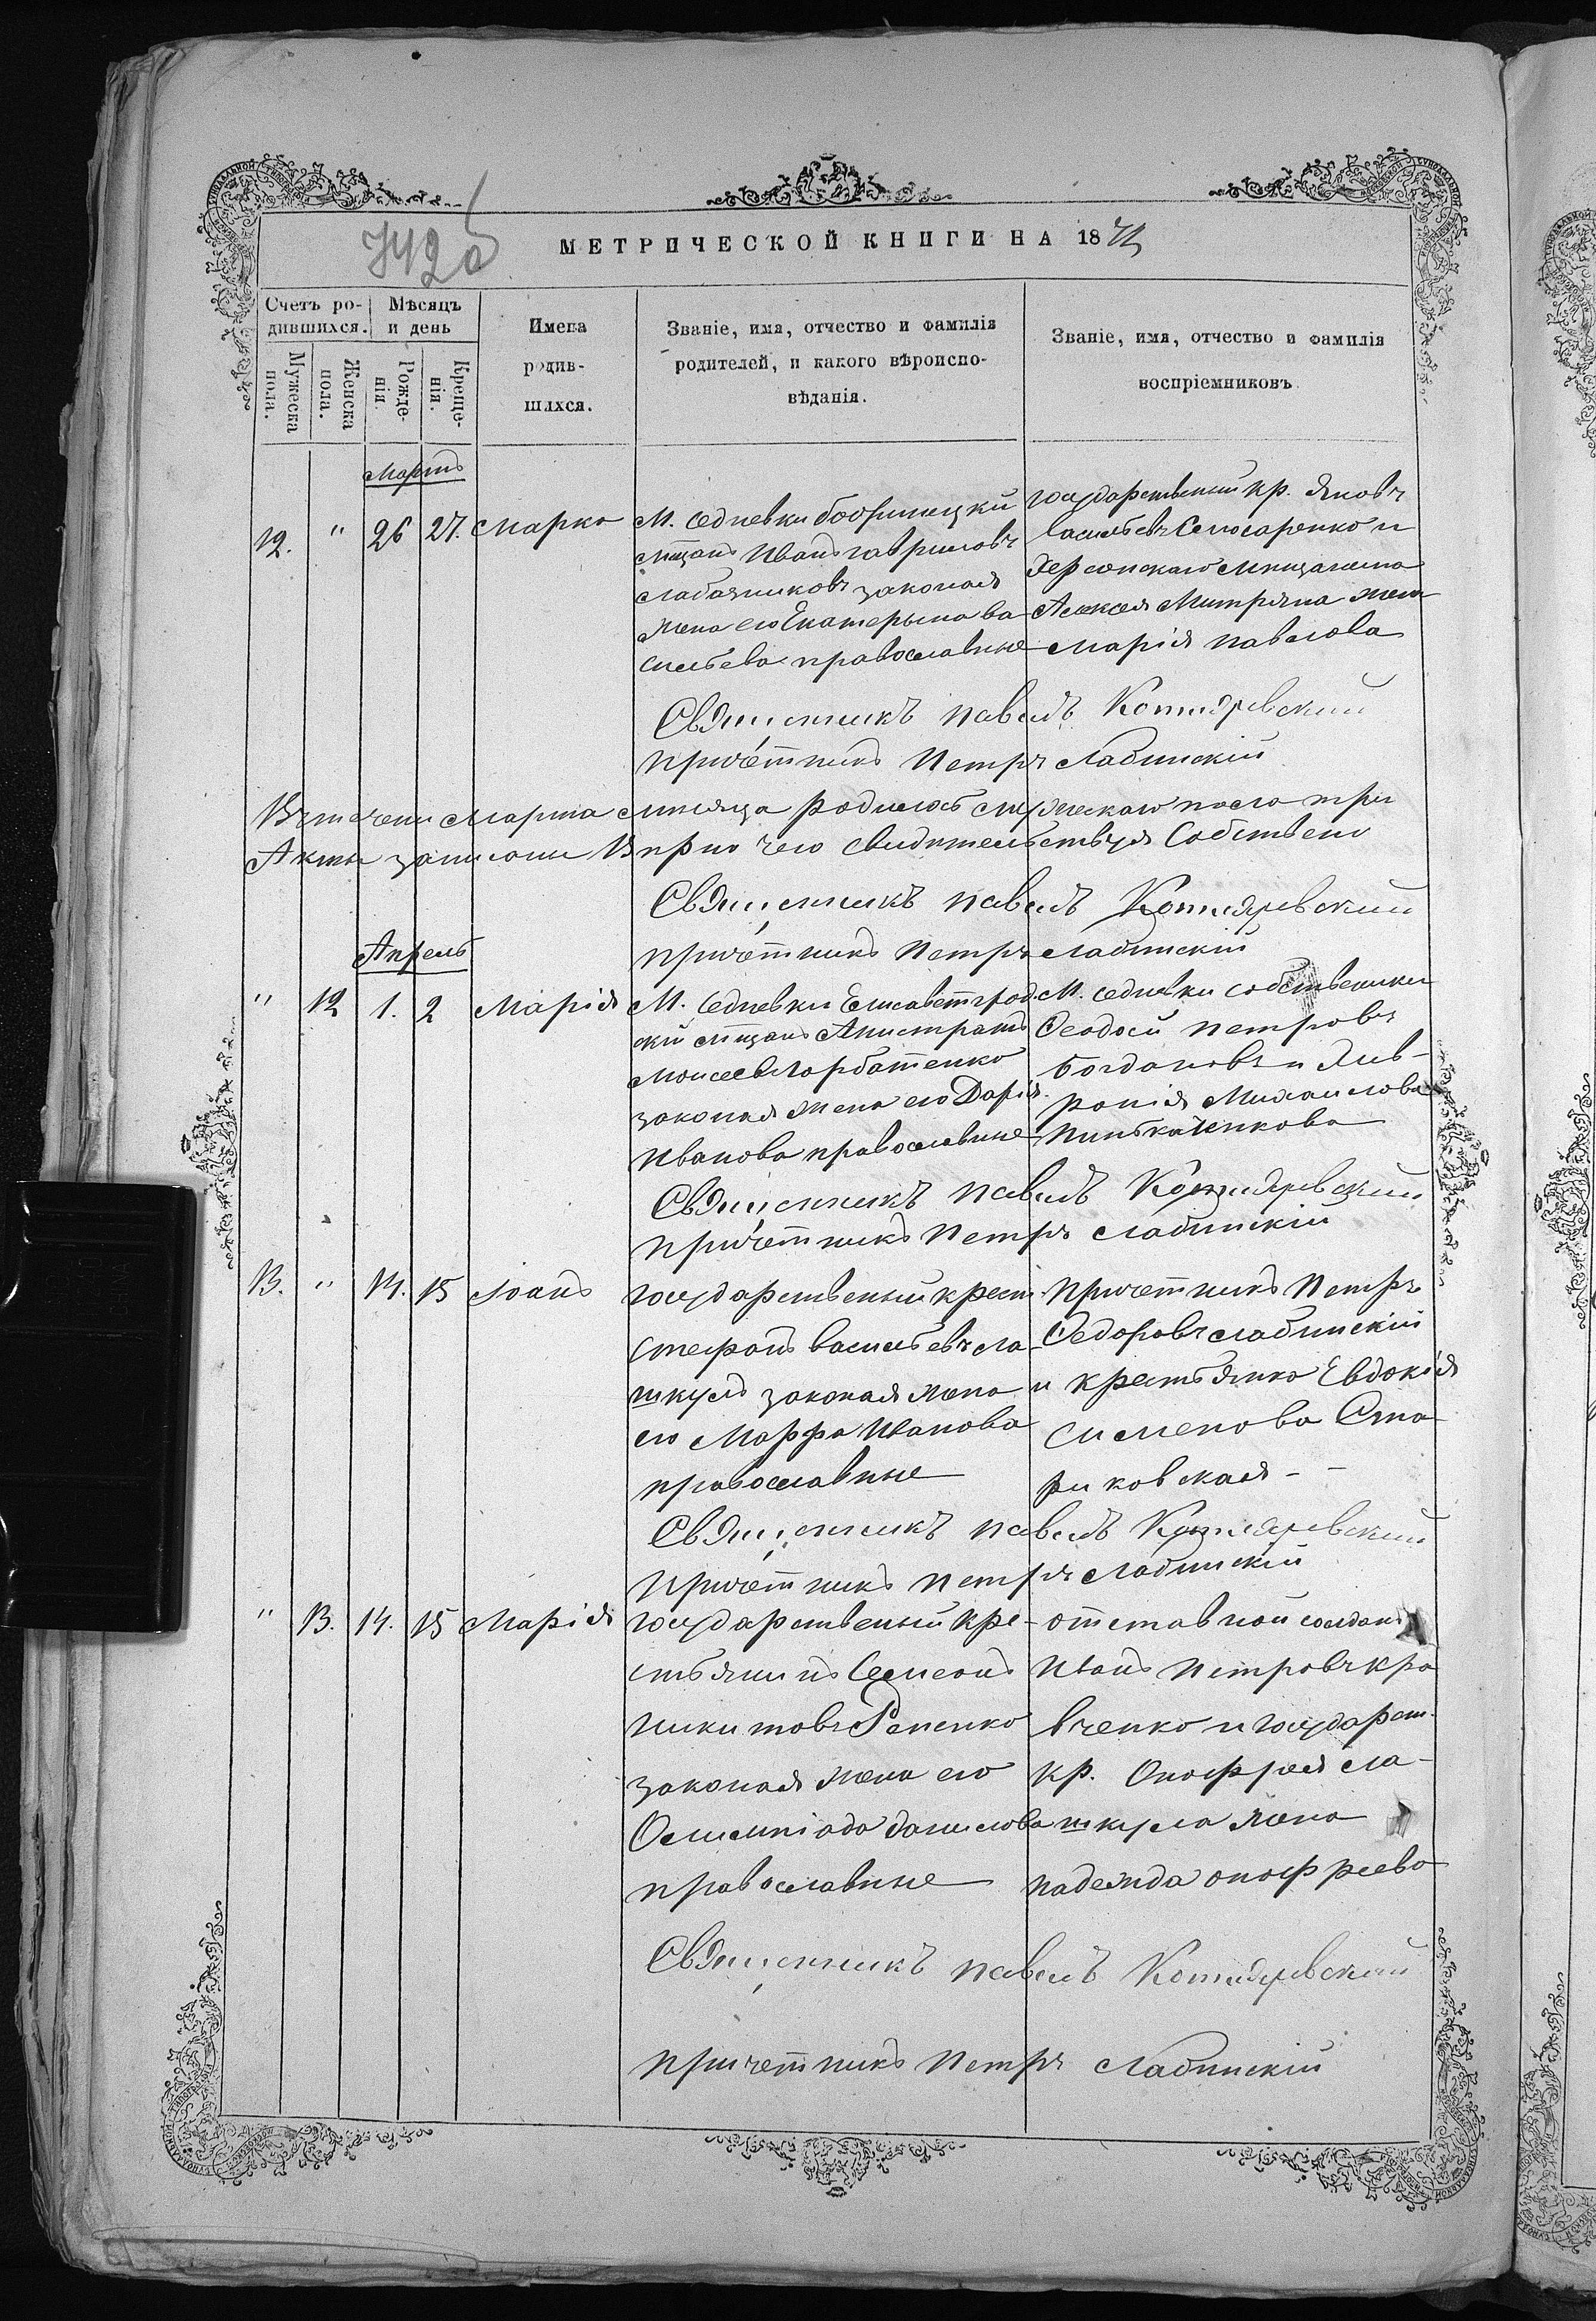 742б
МЕТРИЧЕСКОЙ КНИГИ НА 187
Счетъ ро-
дившихся.
Мужеска
пола.
Женска
пола.
Мѣсяцъ
и день
Рожде-
нія.
Креще-
нія.
Имена
родив-
шихся.
Званіе, имя, отчество и фамилія
родителей, и какого вѣроиспо-
вѣданія.
Званіе, имя, отчество и фамилія
воспріемниковъ
Мартъ
12. " 26 27. Марко
М. Седневки бобринецкій
мѣщанъ Иванъ гавриловъ
законая
жена его Екатерына ва
сильева православные
государственый кр. Яковъ
васильевъ Слюсаренко и
херсонскаго мищанина
Алексея Митряна жена
Марія павлова
Священникъ павелъ Котляревский
причетникъ Петръ Лабинскій
Втечени Марта мисяца родилось мужескаго посла три
Акты записаны вирно чего свидительствуя Собствено
Священникъ павелъ Котляревский
причетникъ Петръ Лабинскій
Апрель
" 12 1. 2 Марія
М. Седневки Елисаветград
скій мѣщанъ Анистратъ
Моисеевъ Горбатенко
законая жена его Дарія
Иванова православные
М. седневки собственики
Феодосій петровъ
богдановъ и Яв-
ронія Михаилова
Священникъ павелъ Котляревский
причетникъ Петръ Лабинскій
13. " 14. 15 Іоанъ
государственый крест
Стефанъ васильевъ ла-
шкулъ законая жена
его Марфа Иванова
православные
Причетникъ Петръ
Федоровъ лабинскій
и крестьянка Евдокія
Сименова Ста-
риковская - -
Священникъ павелъ Котляревский
причетникъ петръ Лабинскій
" 13. 14. 15 Марія
государственый кре-
стьянинъ Семеонъ
никитовъ Репенко
законая жена его
Олимпіада данилова
православные
отставной солдатъ
Иванъ Петровъ кра
вченко и государст.
кр. Онофрея ла-
шкула жена
надежда онофреева
Священникъ павелъ Котляревский
причетникъ петръ Лабинскій